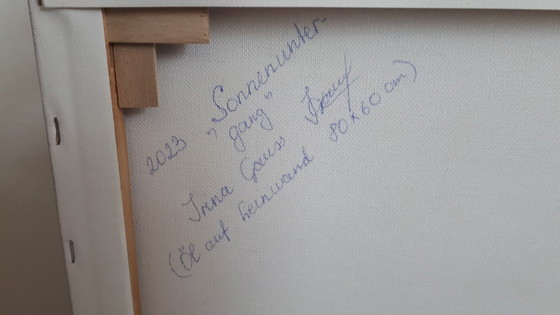 2023 „Sonnenunter-
gang"
Irina Gauss
(Öl auf Leinwand 80x60 cm)